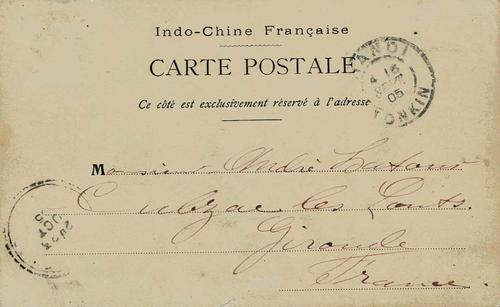 Indo-Chine Française
CARTE POSTALE
Ce côté est exclusivement réservé à l'adresse
HANOI
16
05
TONKIN
Monsieur André Latour
Cubzac les Ponts
Gironde
France.
OCT